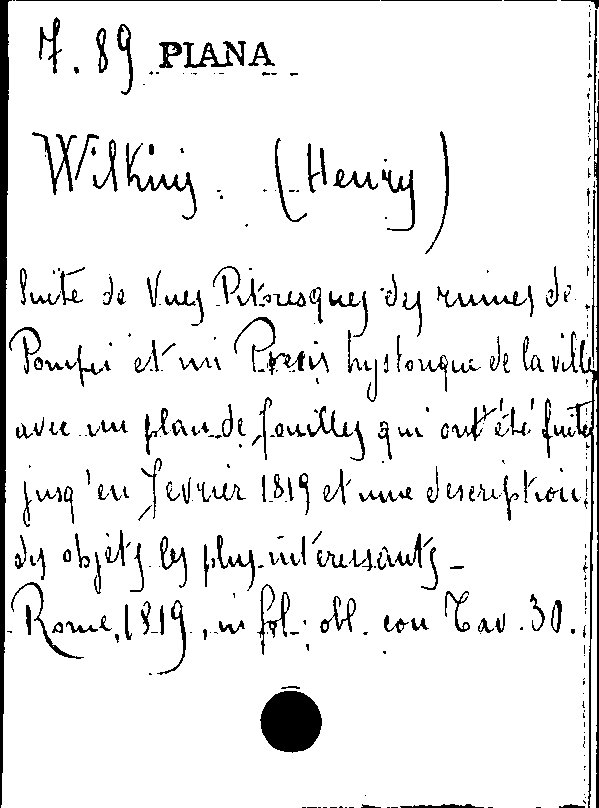 7.89 PIANA
Wilkins. (Henry)
Suite de Vues Pitoresques des ruines de
Pompei et un Precis hystorique de la ville
avec un plan de fouilles qui ont été faites
jusq'en Fevrier 1819 et une description
des objets les plus intéressants –
Rome, 1819, in fol. obl. con Tav. 30.